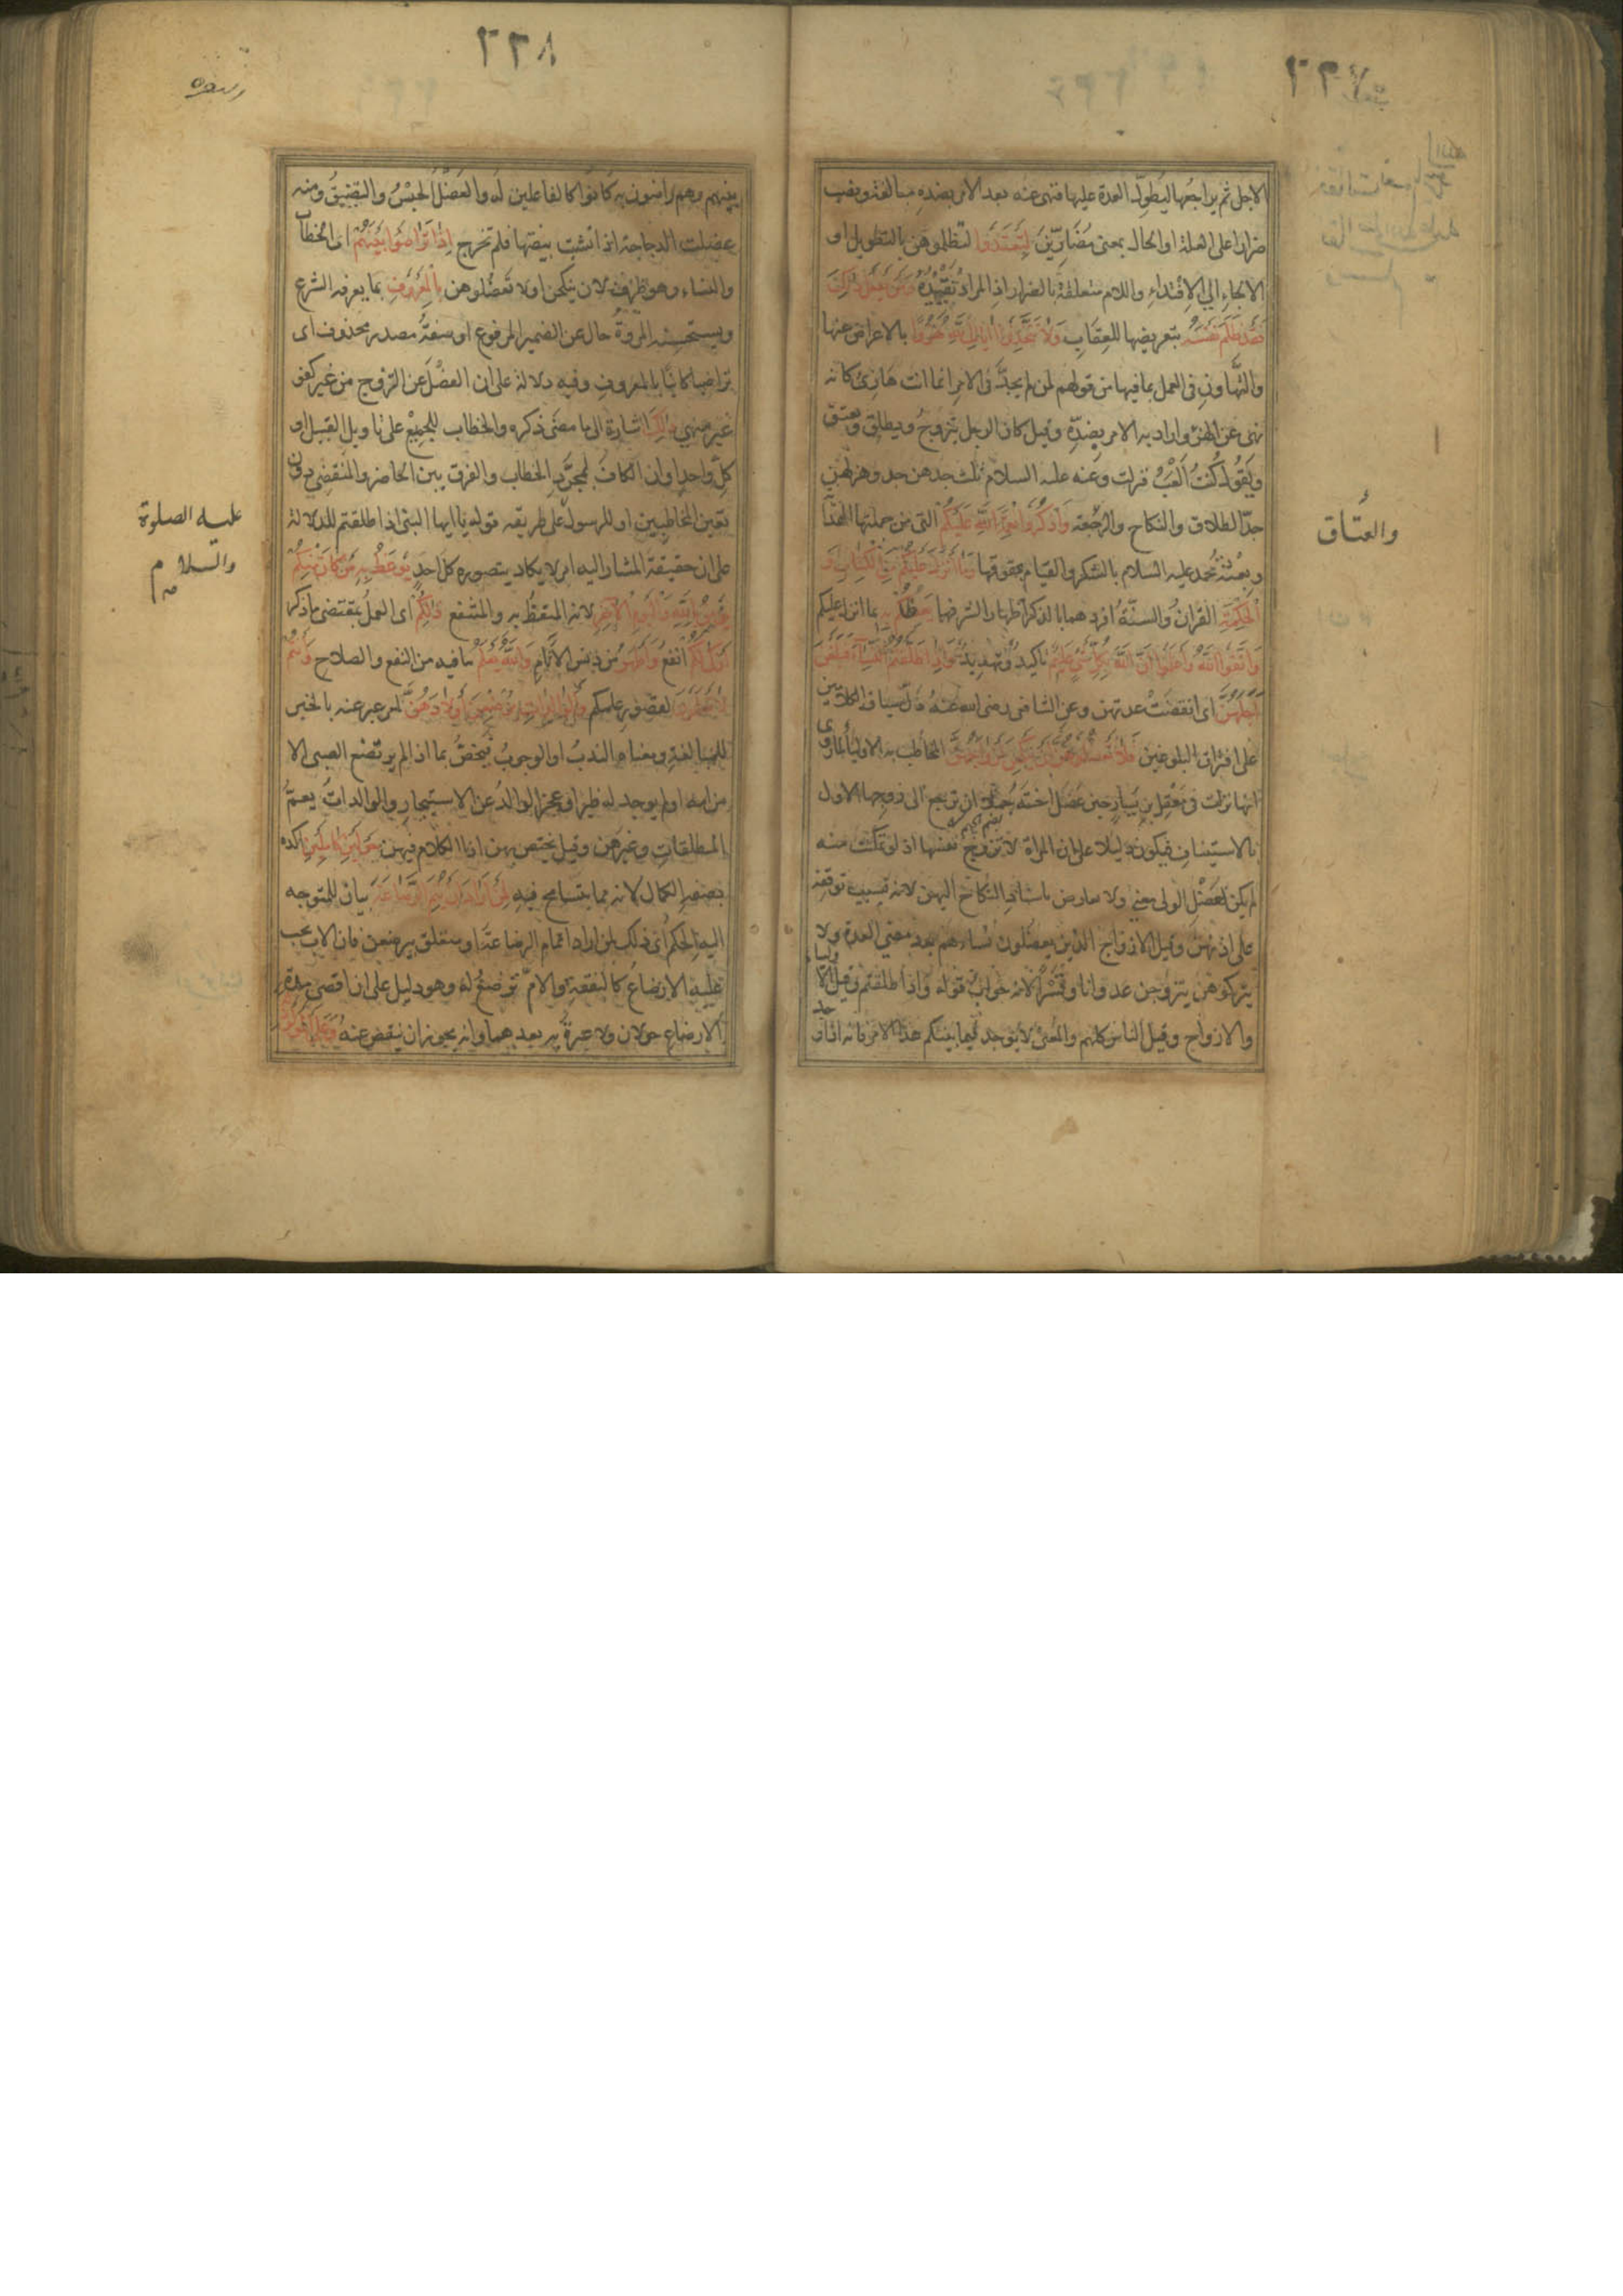 ٢٢٧
الاجل ثم يراجعها ليطول العدة عليها فنهى عنه بعد الامر بضده مبالغة ونصب
ضرارا على العلة او الحال بمعنى مضارين لِتَعْتَدُوا لتظلموهن بالتطويل او
الالجاء الى الافتداء واللام متعلقة بالضرار اذ المراد تقييده وَمَنْ يَفْعَلْ ذَلِكَ
فَقَدْ ظَلَمَ نَفْسَهُ بتعريضها للعقاب وَلَا تَتَّخِذُوا آيَاتِ اللَّهِ هُزُوًا بالاعراض عنها
والتهاون فى العمل بما فيها من قولهم لمن لم يجد فى الامر انما انت هازئ كانه
نهى عن الهزؤ واراد به الامر بضده وقيل كان الرجل يتزوج ويطلق ويعتق
ويقول كنت العب فنزلت وعنه عليه السلام ثلث جدهن جد وهزلهن
جد الطلاق والنكاح والرجعة وَاذْكُرُوا نِعْمَةَ اللَّهِ عَلَيْكُمْ التى من جملتها الهداية
وبعثة محمد عليه السلام بالشكر والقيام بحقوقها وَمَا أَنْزَلَ عَلَيْكُمْ مِنَ الْكِتَابِ وَ
الْحِكْمَةِ القران والسنة افردهما بالذكر اظهارا لشرفهما يَعِظُكُمْ بِهِ بما انزل عليكم
وَاتَّقُوا اللَّهَ وَاعْلَمُوا أَنَّ اللَّهَ بِكُلِّ شَيْءٍ عَلِيمٌ تاكيد وتهديد وَإِذَا طَلَّقْتُمُ النِّسَاءَ فَبَلَغْنَ
أَجَلَهُنَّ اى انقضت عدتهن وعن الشافى رضى الله عنه دل سياق الكلامين
على افتراق البلوغين فَلَا تَعْضُلُوهُنَّ أَنْ يَنْكِحْنَ أَزْوَاجَهُنَّ المخاطب به الاولياء لما روى
انها نزلت فى معقل بن يسار حين عضل اخته جملاء ان ترجع الى زوجها الاول
بالاستيناف فيكون دليلا على ان المراة لا تزوج نفسها اذ لو تمكنت منه
لم يكن لعضل الولى معنى ولا يعارض باسناد النكاح اليهن لانه بسبب توقفه
على اذنهن وقيل الازواج الذين يعضلون نساءهم بعد مضى العدة ولا
يتركوهن يتزوجن عدوانا وقسرا لانه جواب قوله واذا طلقتم وقيل الاولياء
والازواج وقيل الناس كلهم والمعنى لا يوجد فيما بينكم هذا الامر فانه اذا وجد
والعتاق
٢٢٨
بينهم وهم راضون به كانوا كالفاعلين له والعضل الحبس والتضييق ومنه
عضلت الدجاجة اذا نشبت بيضتها فلم تخرج إِذَا تَرَاضَوْا بَيْنَهُمْ اى الخطاب
والنساء وهو ظرف لان ينكحن او لا تعضلوهن بِالْمَعْرُوفِ بما يعرفه الشرع
ويستحسنه المروة حال عن الضمير المرفوع او صفة مصدر محذوف اى
تراضيا كائنا بالمعروف وفيه دلالة على ان العضل عن التزوج من غير كفو
غير منهى ذَلِكَ اشارة الى ما مضى ذكره والخطاب للجميع على تاويل القبيل او
كل واحد او ان الكاف لمجرد الخطاب والفرق بين الحاضر والمنقضى دون
تعيين المخاطبين او للرسول على طريقه قوله يا ايها النبى اذا طلقتم للدلالة
على ان حقيقة المشار اليه امر لا يكاد يتصوره كل احد يُوعَظُ بِهِ مَنْ كَانَ مِنْكُمْ
يُؤْمِنُ بِاللَّهِ وَالْيَوْمِ الْآخِرِ لانه المتعظ به والمنتفع ذَلِكُمْ اى العمل بمقتضى ما ذكر
أَزْكَى لَكُمْ انفع وَأَطْهَرُ من دنس الاثام وَاللَّهُ يَعْلَمُ ما فيه من النفع والصلاح وَأَنْتُمْ
لَا تَعْلَمُونَ لقصور علمكم وَالْوَالِدَاتُ يُرْضِعْنَ أَوْلَادَهُنَّ امر عبر عنه بالخبر
للمبالغة ومعناه الندب او الوجوب فيختص بما اذا لم يرتضع الصبى الا
من امه او لم يوجد له ظئر او عجز الوالد عن الاستيجار والوالدات يعم
المطلقات وغيرهن وقيل يختص بهن اذ الكلام فيهن حَوْلَيْنِ كَامِلَيْنِ اكده
بصفة الكمال لانه مما يتسامح فيه لِمَنْ أَرَادَ أَنْ يُتِمَّ الرَّضَاعَةَ بيان للمتوجه
اليه الحكم اى ذلك لمن اراد اتمام الرضاعة او متعلق بيرضعن فان الاب يجب
عليه الارضاع كالنفقة والام ترضع له وهو دليل على ان اقصى مدة
الارضاع حولان ولا عبرة به بعدهما وانه يجوز ان ينقص عنه وَعَلَى الْمَوْلُودِ
عليه الصلوة
والسلام